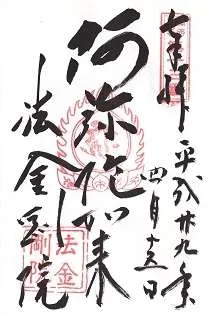 奉拝
平成廿九年
四月十五日
阿弥陀如来
法金剛院
法金
剛院